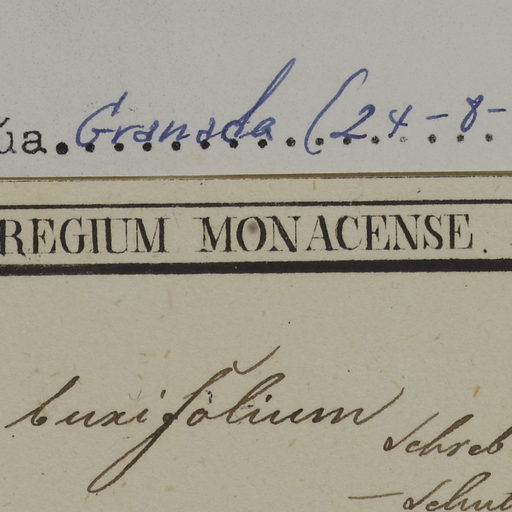 úa. Granada (24-8-
REGIUM MONACENSE.
buxifolium
Schreb
— Schut